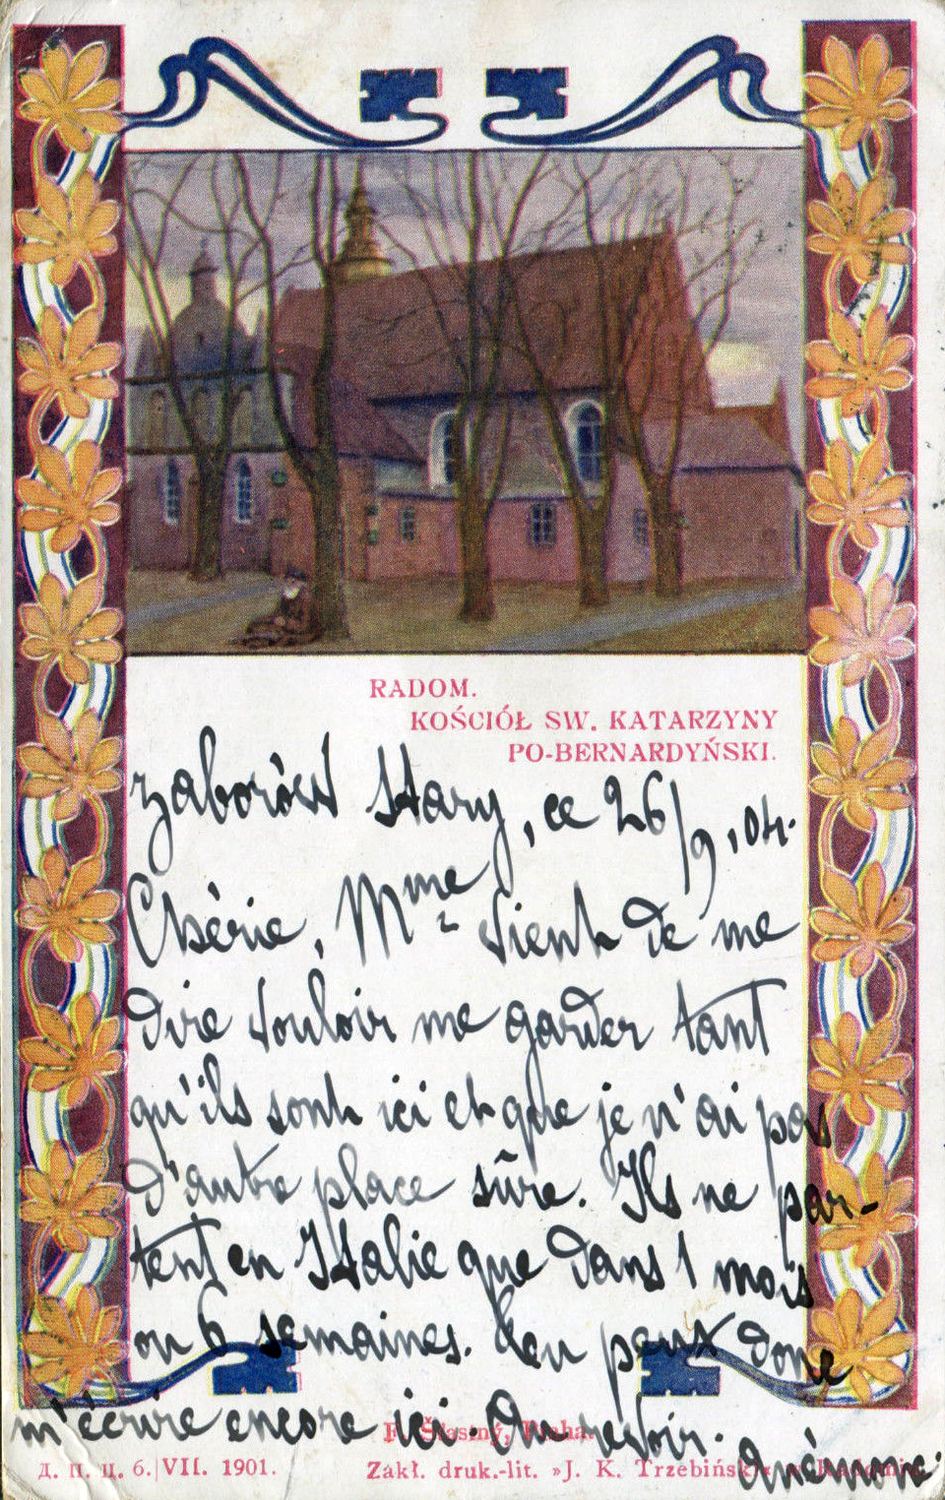 RADOM.
KOŚCIÓŁ SW. KATARZYNY
PO-BERNARDYŃSKI.
Zaborów Stary, ce 26/9, 04.
Chérie, Mme vient de me
dire vouloir me garder tant
qu'ils sont ici et que je n'ai pas
d'autre place sûre. Ils ne par-
tent en Italie que dans 1 mois
ou 6 semaines. peux donc
m'écrire encore ici. Au revoir.
Anémone.
F. Šťastný, Praha.
Д. Ц. Ц. 6. VII. 1901.
Zakł. druk.-lit. »J. K. Trzebiński« w Radomiu.